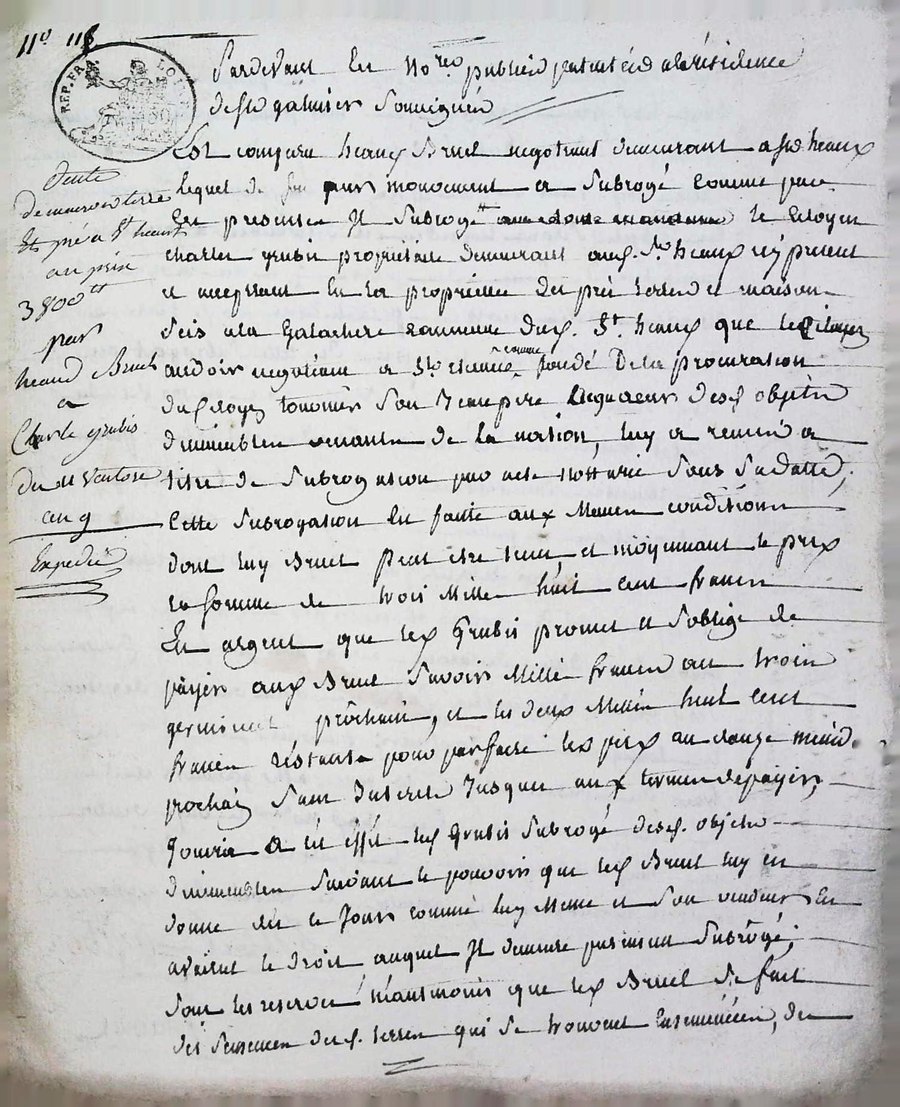 110 118
REP. FRA
Pardevant Les No.res publics patentés a la résidence
de St galmier soussignés
Est comparu heaux Bruel negotiant demeurant a St heaux
lequel de gré par monoment a Subrogé comme par
Les presentes Il Subroge le Citoyen
charles grubis propriétaire demeurant aud. St heaux icy present
et acceptant En la propriettée des prés terres et maison
Scis a la commune dud. St heaux que le Citoyen
audois negotiant a St etienne comme fondé De la procuration
du Citoyen Son Beaupere acquereur desd objets
d'immeubles venants de la nation, luy a remis a
titre de Subrogation par acte nottarié Sous Sa datte;
Cette Subrogation Est faite aux Memes conditions
dont luy Bruel peut etre tenu et moyennant le prix
la somme de trois Mille huit cent francs
En argent que led Grubis promet et S'oblige de
payer aud Bruel Savoir Mille francs au trois
germinal prochain, et les deux Mille huit cent
francs restants pour parfaire led prix au douze
prochain Sans Interets Jusques aux termes de payer,
Jouira a cet effet led Grubis Subrogé desd. objets
d'immeubles Suivant le pouvoir que led Bruel luy en
donne dès ce Jour comme luy Meme et Son vendeur En
avaient le droit auquel Il demeure purement Subrogé;
Sous les reserves néantmoins que led Bruel Se fait
des Semences des d. terres qui Se trouvent Ensemencées, de
Vente
de maison terre
Et pré a St heaux
au prix
3800tt
par
heaud Bruel
a
Charle grubis
du 11 Ventose
an 9
Expedié